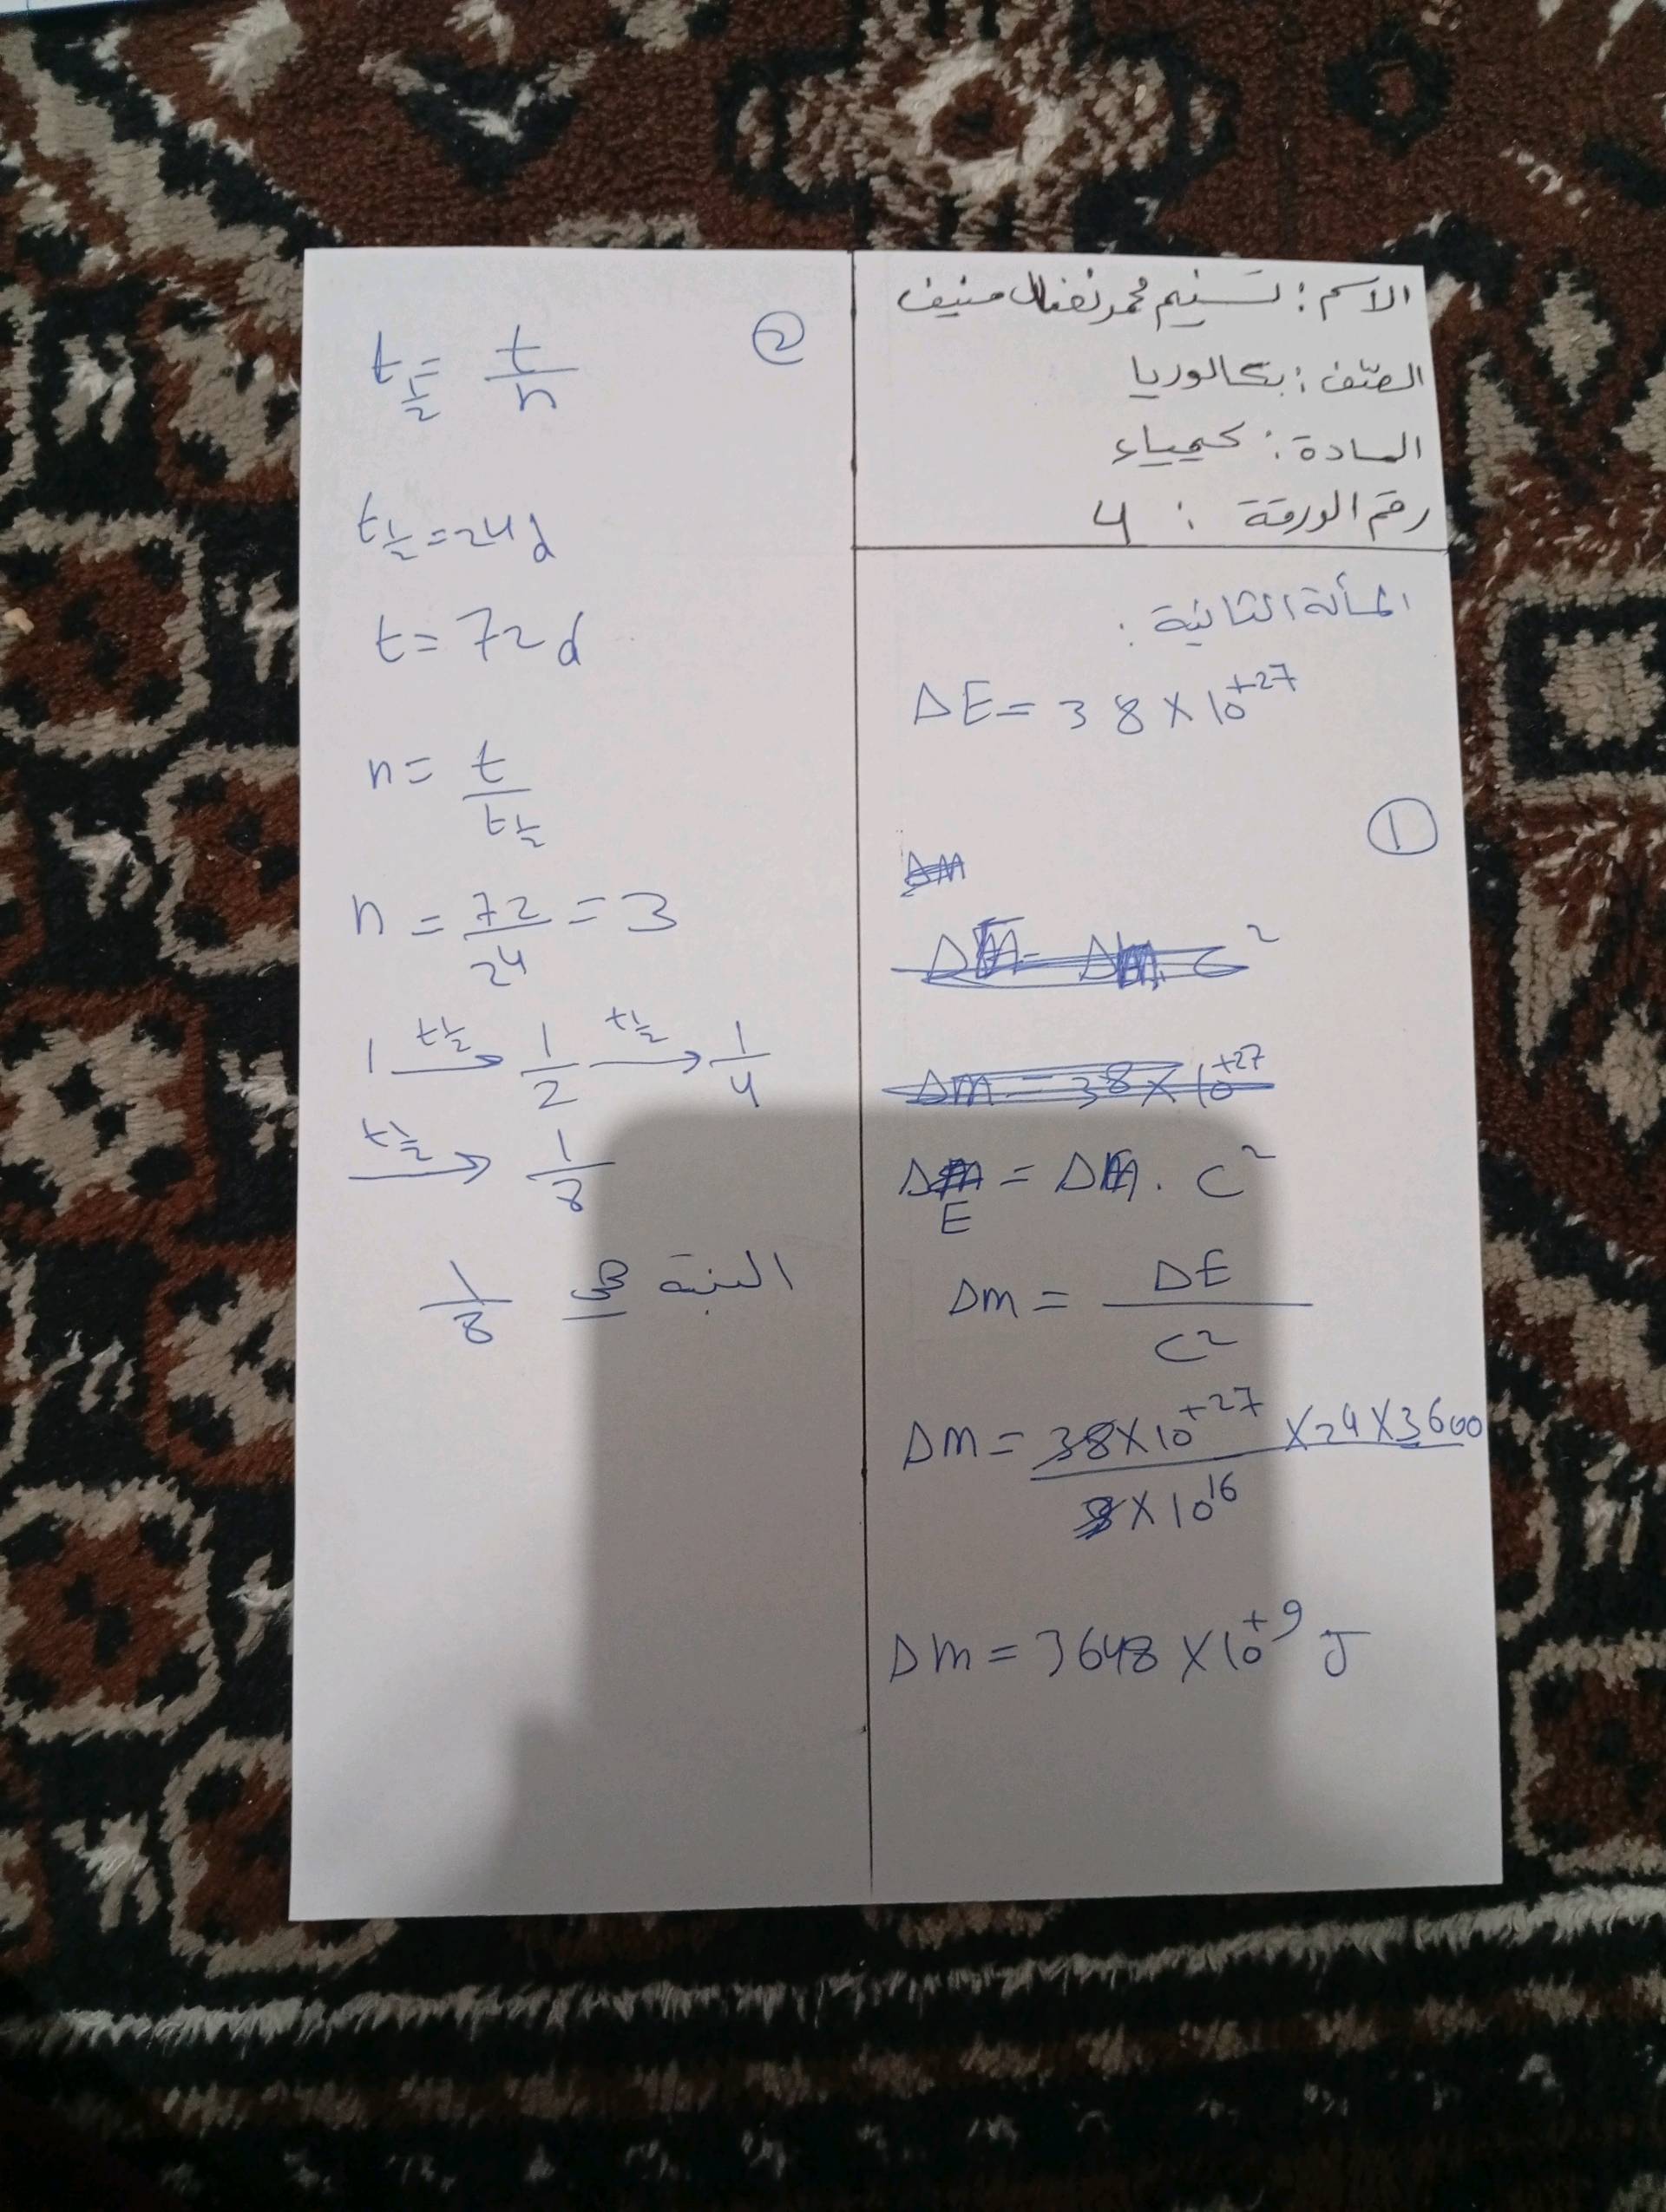 الاسم : تسنيم محمد نضال منيف
الصّف : بكالوريا
المادة : كيمياء
رقم الورقة : 4
المسألة الثانية :
ΔE = 38 × 10^+27
①
ΔE = Δm . C²
Δm = ΔE / C²
Δm = 38×10^+27 × 24 × 3600 / 9×10^16
Δm = 3648 × 10^+9 J
②
t½ = t / n
t½ = 24 d
t = 72 d
n = t / t½
n = 72 / 24 = 3
1 —t½→ 1/2 —t½→ 1/4
—t½→ 1/8
النسبة 1/8